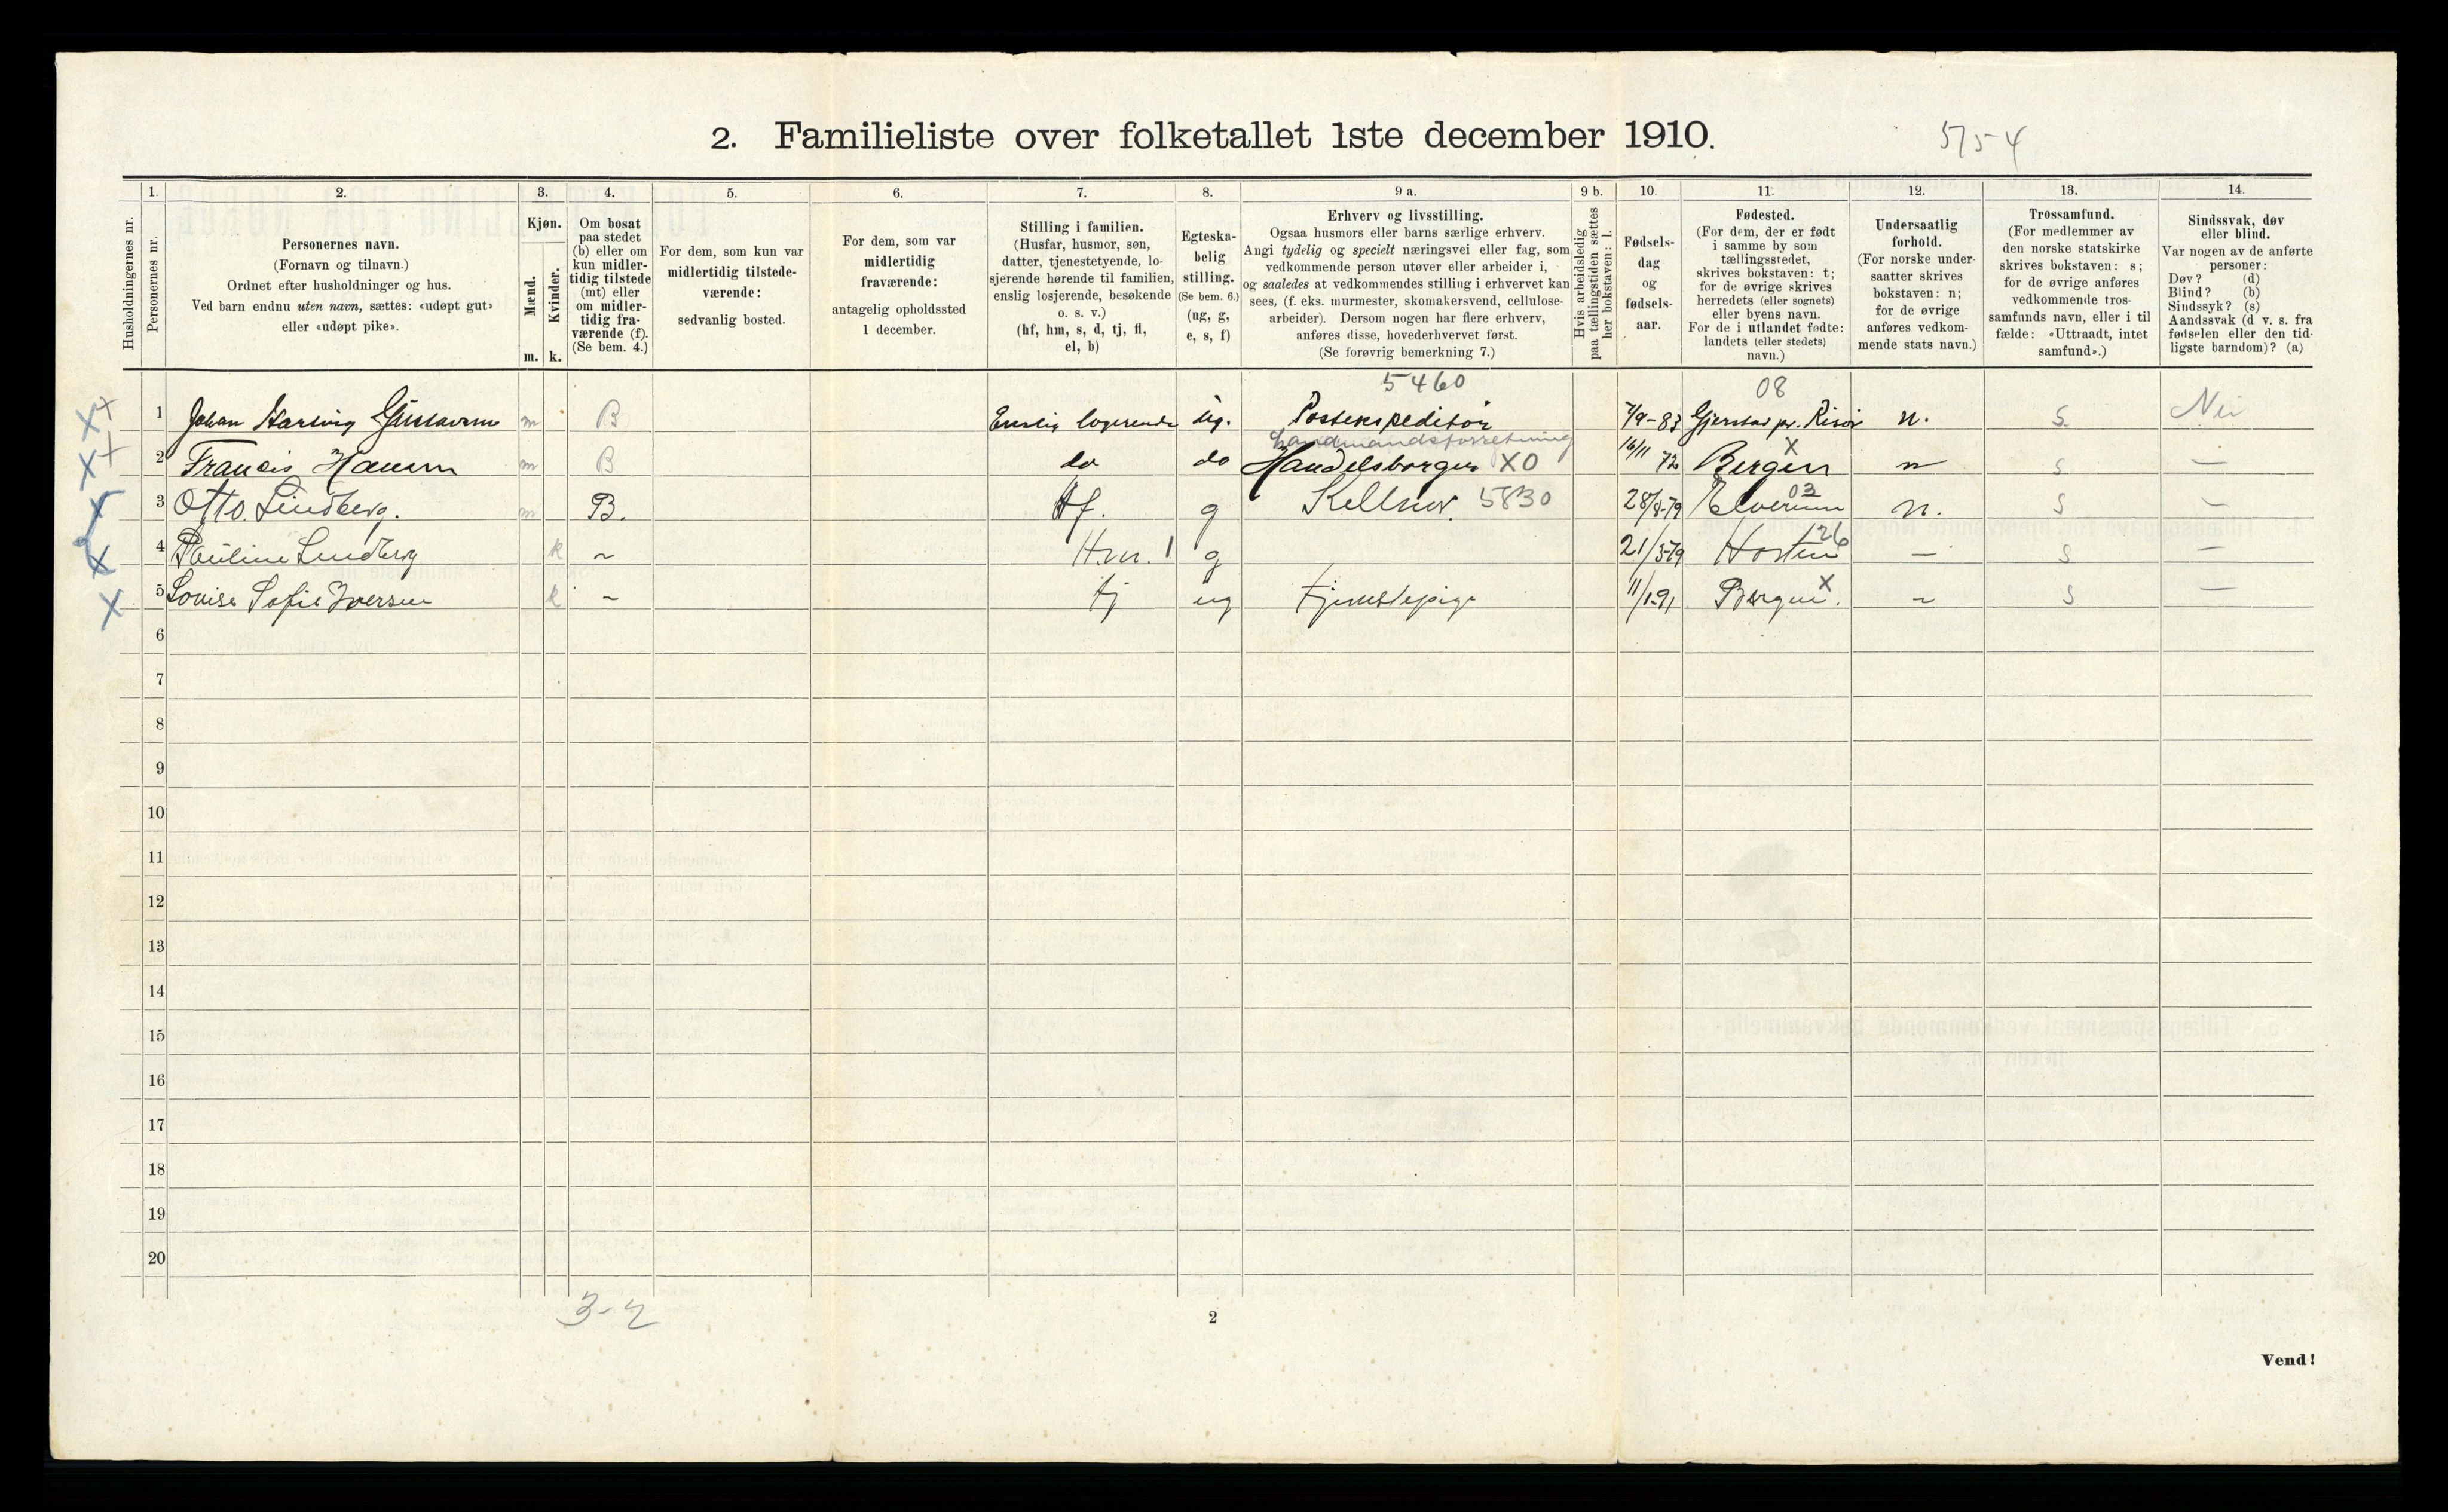 2. Familieliste over folketallet 1ste december 1910.
5754
Husholdningernes nr.
1.
Personernes nr.
2.
Personernes navn.
(Fornavn og tilnavn.)
Ordnet efter husholdninger og hus.
Ved barn endnu uten navn, sættes: «udøpt gut»
eller «udøpt pike».
3.
Kjøn.
Mænd.
Kvinder.
m. k.
4.
Om bosat
paa stedet
(b) eller om
kun midler-
tidig tilstede
(mt) eller
om midler-
tidig fra-
værende (f).
(Se bem. 4.)
5.
For dem, som kun var
midlertidig tilstede-
værende:
sedvanlig bosted.
6.
For dem, som var
midlertidig
fraværende:
antagelig opholdssted
1 december.
7.
Stilling i familien.
(Husfar, husmor, søn,
datter, tjenestetyende, lo-
sjerende hørende til familien,
enslig losjerende, besøkende
o. s. v.)
(hf, hm, s, d, tj, fl,
el, b)
8.
Egteska-
belig
stilling.
(Se bem. 6.)
(ug, g,
e, s, f)
9 a.
Erhverv og livsstilling.
Ogsaa husmors eller barns særlige erhverv.
Angi tydelig og specielt næringsvei eller fag, som
vedkommende person utøver eller arbeider i,
og saaledes at vedkommendes stilling i erhvervet kan
sees, (f. eks. murmester, skomakersvend, cellulose-
arbeider). Dersom nogen har flere erhverv,
anføres disse, hovederhvervet først.
(Se forøvrig bemerkning 7.)
9 b.
Hvis arbeidsledig
paa tællingstiden sættes
her bokstaven: l.
10.
Fødsels-
dag
og
fødsels-
aar.
11.
Fødested.
(For dem, der er født
i samme by som
tællingsstedet,
skrives bokstaven: t;
for de øvrige skrives
herredets (eller sognets)
eller byens navn.
For de i utlandet fødte:
landets (eller stedets)
navn.)
12.
Undersaatlig
forhold.
(For norske under-
saatter skrives
bokstaven: n;
for de øvrige
anføres vedkom-
mende stats navn.)
13.
Trossamfund.
(For medlemmer av
den norske statskirke
skrives bokstaven: s;
for de øvrige anføres
vedkommende tros-
samfunds navn, eller i til
fælde: «Uttraadt, intet
samfund».)
14.
Sindssvak, døv
eller blind.
Var nogen av de anførte
personer:
Døv? (d)
Blind? (b)
Sindssyk? (s)
Aandssvak (d v. s. fra
fødselen eller den tid-
ligste barndom)? (a)
5460 08
XX 1 Johan Hartvig Gustavsen m B Enslig logerende ug. Postexpeditør 7/9-83 Gjerstad pr. Risør n. S. Nei
Landmandsforretning X
XX 2 Francis Hansen m B do do Handelsborger XO 16/11 72 Bergen n s —
X 3 Otto. Lindberg. m B. Hf. g Kellner. 5830 28/8-79 Elverum 03 n. s —
X 4 Pauline Lindberg k ~ Hm. 1 g 21/3-79 126 — s —
X 5 Louise Sofie Iversen k - tj ug tjenestepige 11/1-91 Bergen X. ~ s —
6
7
8
9
10
11
12
13
14
15
16
17
18
19
20
3-2
2
Vend!